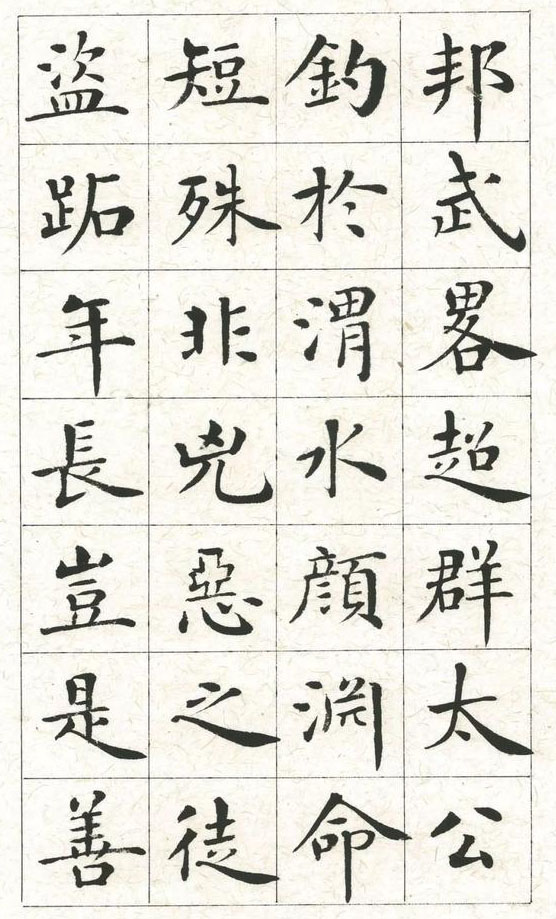 邦武畧超群太公
釣於渭水顏淵命
短殊非兇惡之徒
盜跖年長豈是善